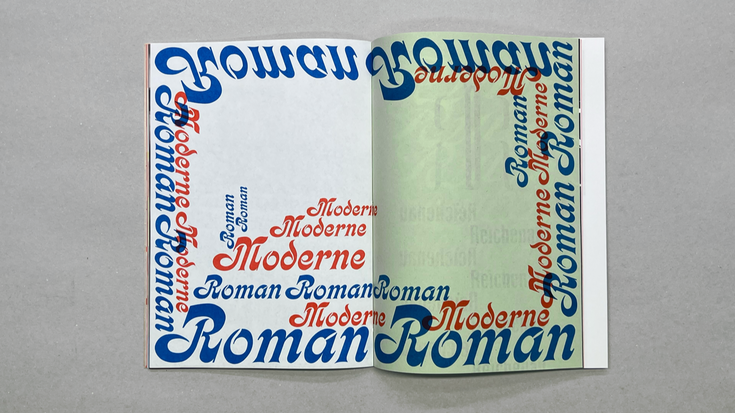 Roman Roman
Moderne
Roman Roman
Moderne Moderne
Roman
Roman
Moderne
Moderne
Moderne
Roman Roman Roman
Moderne Moderne
Roman Roman
Roman
Moderne Moderne
Roman Roman